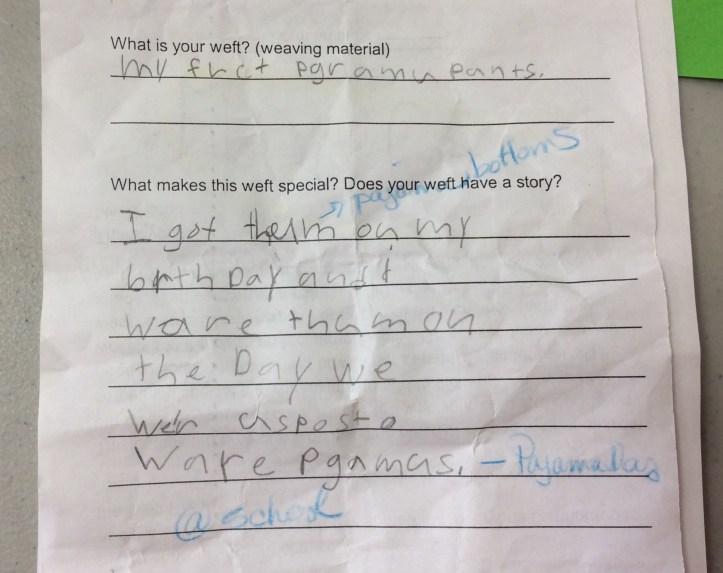 What is your weft? (weaving material)
my fhct pgramu pants.
What makes this weft special? Does your weft have a story?
→ pajama bottoms
I got them on my
brth Day and I
ware tham on
the Day we
wer asposto
ware pgamas. - Pajama Day
@ school